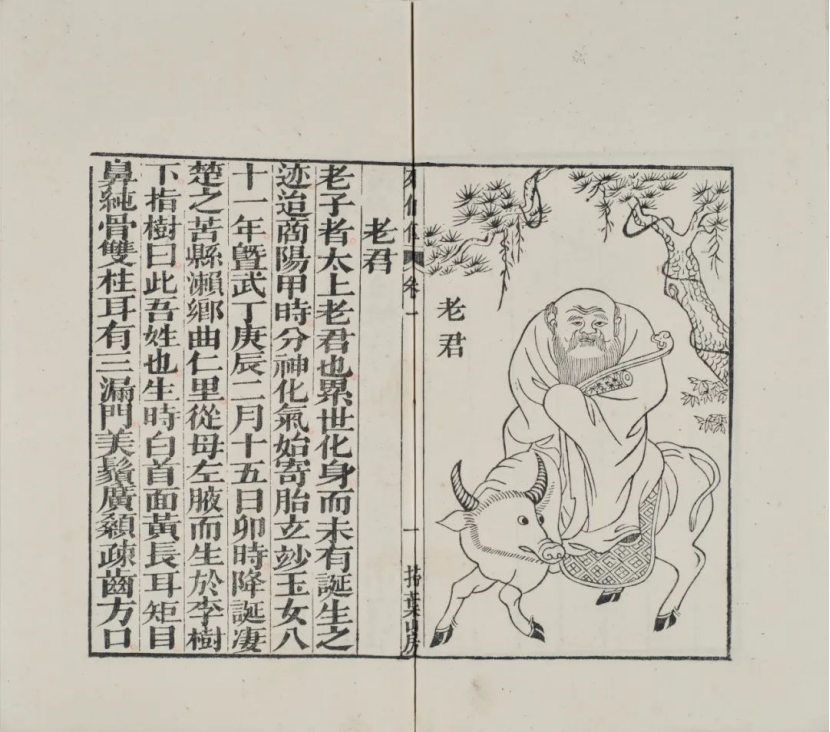 老君
列仙傳
卷一
一
掃葉山房
老君
老子者太上老君也累世化身而未有誕生之
迹迨商陽甲時分神化氣始寄胎玄竗玉女八
十一年暨武丁庚辰二月十五日卯時降誕凄
楚之苦縣瀨鄉曲仁里從母左腋而生於李樹
下指樹曰此吾姓也生時白首面黃長耳矩目
鼻純骨雙柱耳有三漏門美鬚廣顙疎齒方口